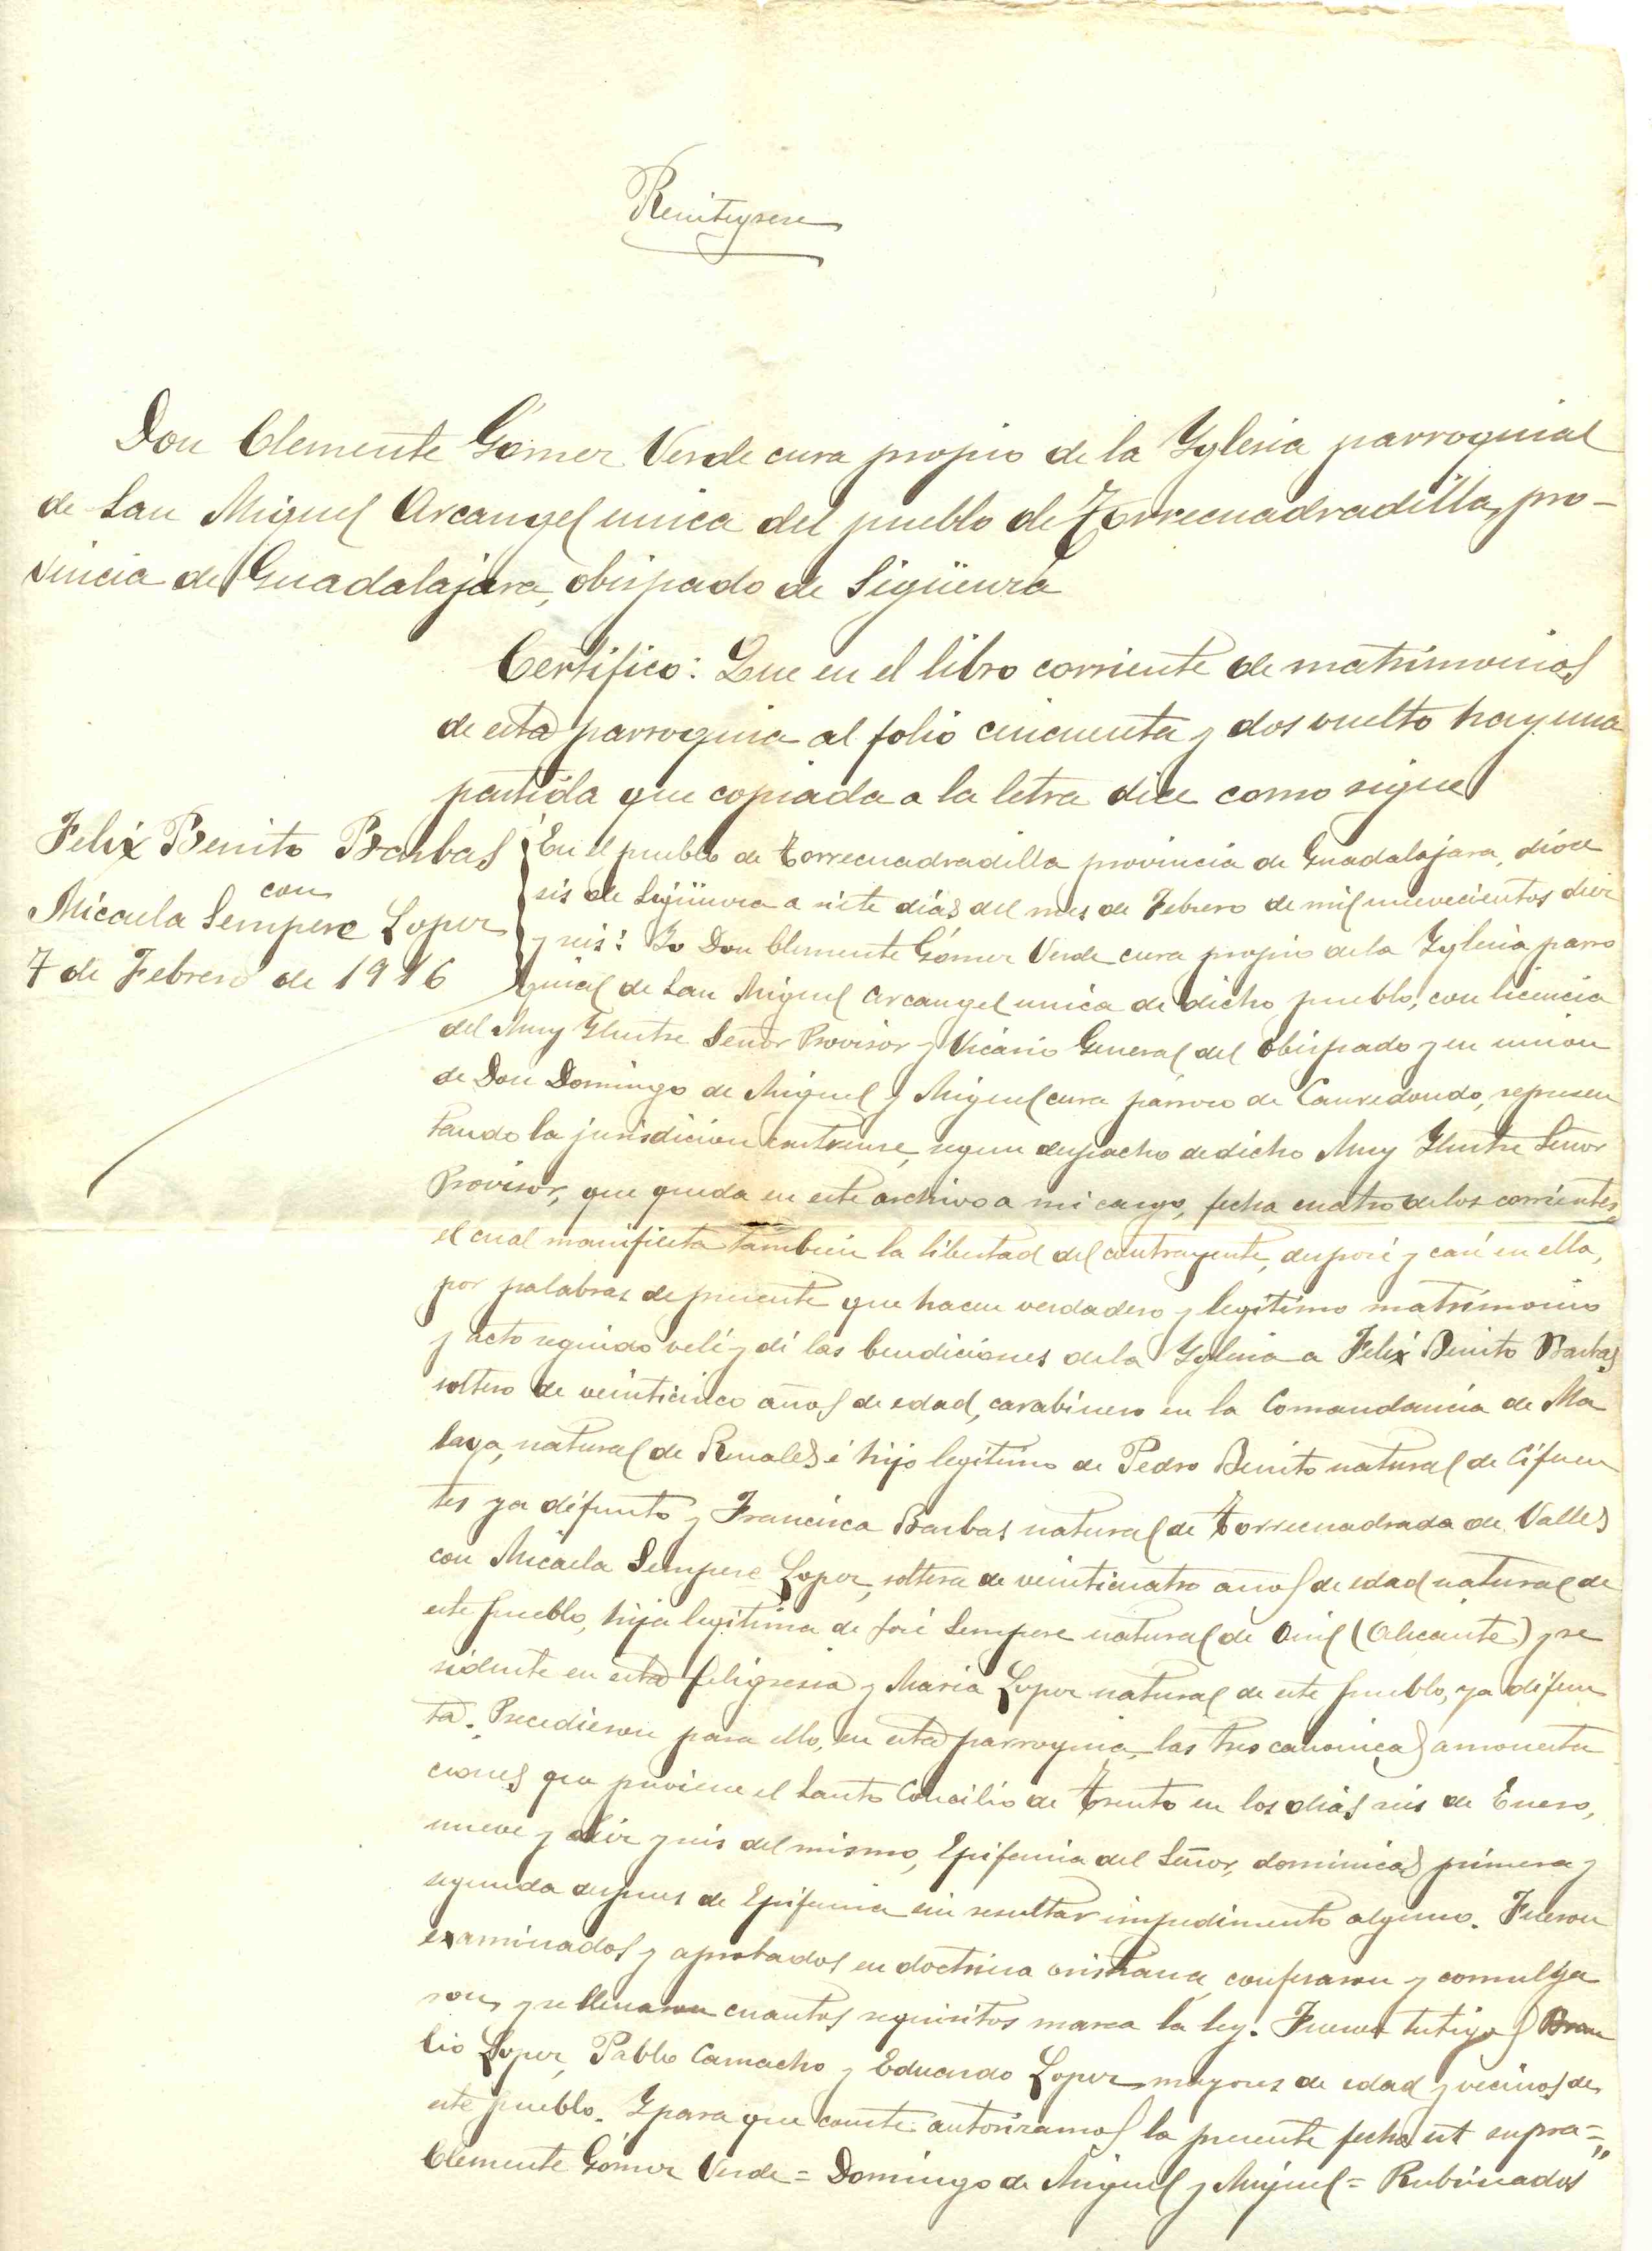 Don Clemente Gómez Verde cura propio de la Yglesia parroquial
de San Miguel Arcangel unica del pueblo de Torrecuadradilla, pro-
vincia de Guadalajara, obispado de Sigüenza
Certifico: Que en el libro corriente de matrimonios
de esta parroquia al folio cincuenta y dos vuelto hay una
partida que copiada a la letra dice como sigue
Felix Benito Barbas
con
Micaela Sempere Lopez
7 de Febrero de 1916
En el pueblo de Torrecuadradilla provincia de Guadalajara, dióce
sis de Sigüenza a siete dias del mes de Febrero de mil nuevecientos diez
y seis: Yo Don Clemente Gómez Verde cura propio de la Yglesia parro
quial de San Miguel Arcangel unica de dicho pueblo, con licencia
del Muy Ylustre Señor Provisor y Vicario General del Obispado y en union
de Don Domingo de Miguel y Miguel cura párroco de Canredondo, represen
tando la jurisdicion castrense, segun despacho de dicho Muy Ylustre Señor
Provisor, que queda en este archivo a mi cargo, fecha cuatro de los corrientes,
el cual manifiesta tambien la libertad del contrayente, desposé y casé en ella,
por palabras de presente que hacen verdadero y legítimo matrimonio
y acto seguido velé y dí las bendiciones de la Yglesia a Felix Benito Barbas
soltero de veinticinco años de edad, carabinero en la Comandancia de Ma
laga, natural de Renales é hijo legítimo de Pedro Benito natural de Cifuen
tes ya difunto y Francisca Barbas natural de Torrecuadrada de Valles
con Micaela Sempere Lopez, soltera de veinticuatro años de edad natural de
este pueblo, hija legitima de José Sempere natural de Onil (Alicante) y re
sidente en esta feligresia y Maria Lopez natural de este pueblo, ya difun
ta. Precedieron para ello, en esta parroquia las tres canonicas amonesta
ciones que previene el Santo Concilio de Trento en los dias seis de Enero,
nueve y diez y seis del mismo, Epifania del Señor, dominicas primera y
segunda despues de Epifania sin resultar impedimento alguno. Fueron
examinados y aprobados en doctrina cristiana, confesaron y comulga
ron, y se llenaron cuantos requisitos marca la ley. Fueron testigos Brau
lio Lopez, Pablo Camacho y Eduardo Lopez mayores de edad y vecinos de
este pueblo. Y para que conste autorizamos la presente fecha ut supra=
Clemente Gómez Verde = Domingo de Miguel y Miguel = Rubricados"